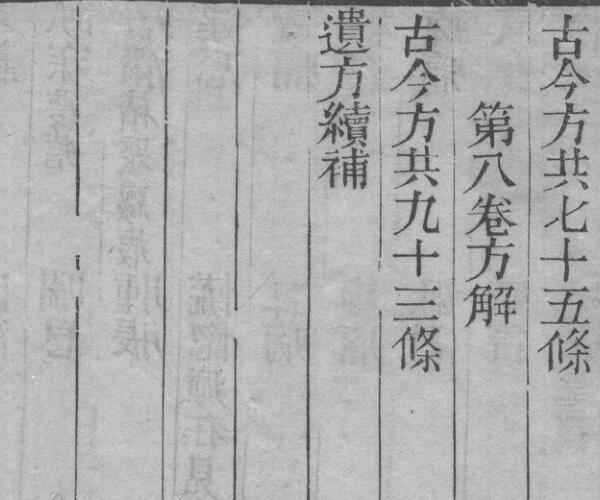 古今方共七十五條
第八卷方解
古今方共九十三條
遺方續補